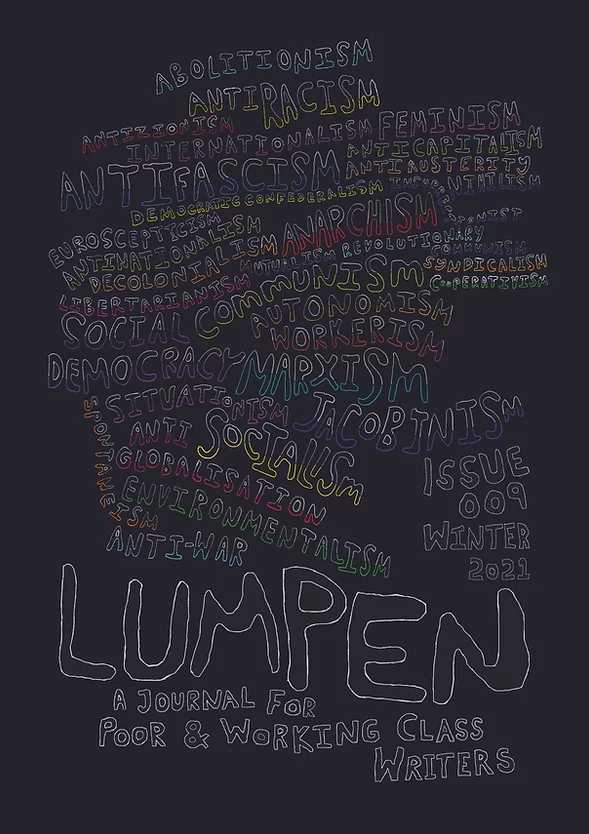 ABOLITIONISM
ANTIRACISM
ANTIZIONISM
INTERNATIONALISM
FEMINISM
ANTICAPITALISM
ANTIFASCISM
ANTIAUSTERITY
NIHILISM
DEMOCRATIC CONFEDERALISM
EUROSCEPTICISM
ANTINATIONALISM
ANARCHISM
REVOLUTIONARY
DECOLONIALISM
MUTUALISM
COMMUNISM
SYNDICALISM
LIBERTARIANISM
COMMUNISM
COOPERATIVISM
SOCIAL
AUTONOMISM
WORKERISM
DEMOCRACY
MARXISM
SPONTANEISM
SITUATIONISM
JACOBINISM
ANTI
GLOBALISATION
SOCIALISM
ENVIRONMENTALISM
ANTI-WAR
ISSUE
009
WINTER
2021
LUMPEN
A JOURNAL FOR
POOR & WORKING CLASS
WRITERS